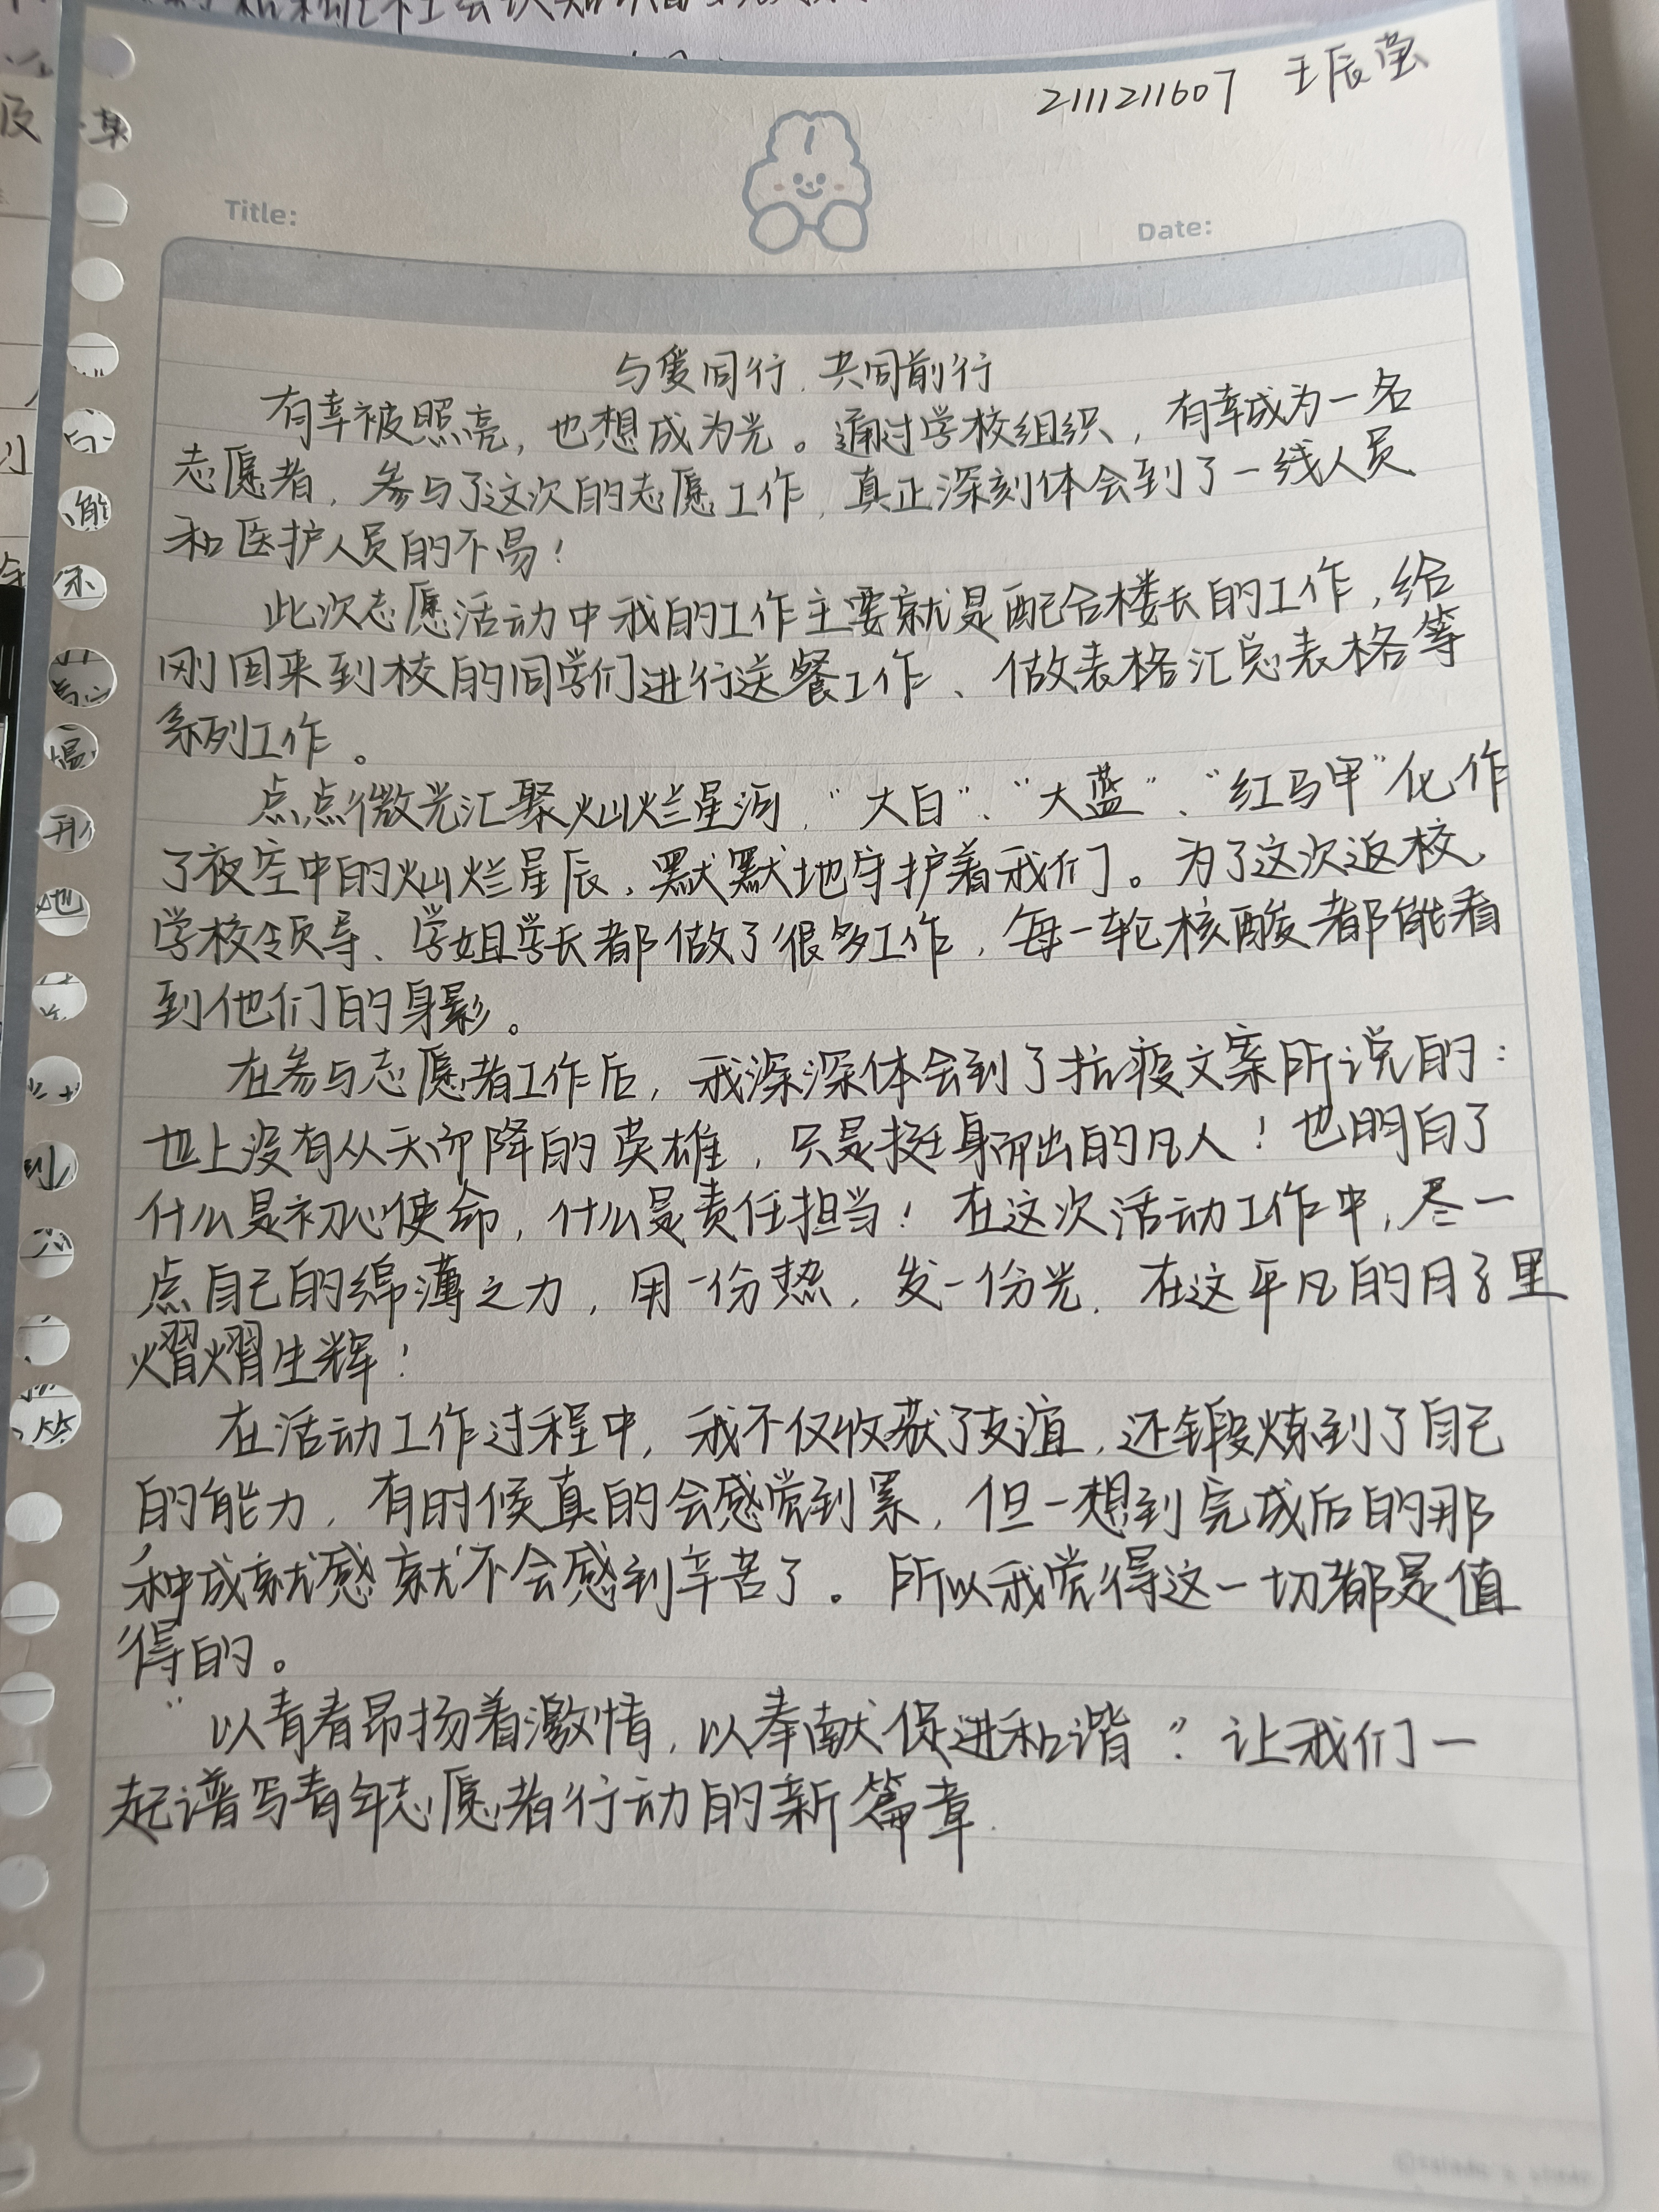 2111211607 王辰莹
Title:
Date:
与爱同行.共同前行
有幸被照亮,也想成为光。通过学校组织,有幸成为一名
志愿者,参与了这次的志愿工作,真正深刻体会到了一线人员
和医护人员的不易!
此次志愿活动中我的工作主要就是配合楼长的工作,给
刚回来到校的同学们进行送餐工作、做表格汇总表格等
系列工作。
点点微光汇聚灿烂星河,“大白”、“大蓝”、“红马甲”化作
了夜空中的灿烂星辰,默默地守护着我们。为了这次返校,
学校领导、学姐学长都做了很多工作,每一轮核酸都能看
到他们的身影。
在参与志愿者工作后,我深深体会到了抗疫文案所说的:
世上没有从天而降的英雄,只是挺身而出的凡人!也明白了
什么是初心使命,什么是责任担当!在这次活动工作中,尽一
点自己的绵薄之力,用一份热,发一份光,在这平凡的日子里
熠熠生辉!
在活动工作过程中,我不仅收获了友谊,还锻炼到了自己
的能力,有时候真的会感觉到累,但一想到完成后的那
种成就感就不会感到辛苦了。所以我觉得这一切都是值
得的。
“以青春昂扬着激情,以奉献促进和谐”让我们一
起谱写青年志愿者行动的新篇章.